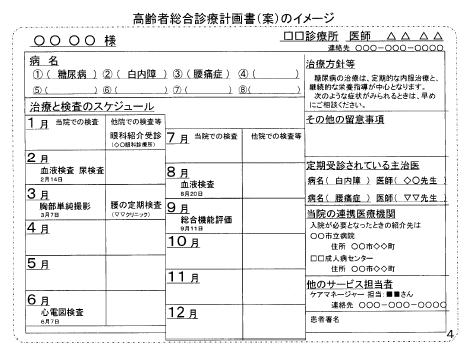 高齢者総合診療計画書(案)のイメージ
○○○○ 様
□□診療所 医師 △ △ △ △
連絡先 ○○○-○○○-○○○○
病 名
①( 糖尿病 ) ②( 白内障 ) ③( 腰痛症 ) ④( )
⑤( ) ⑥( ) ⑦( ) ⑧( )
治療と検査のスケジュール
1月 当院での検査 他院での検査等
眼科紹介受診
(◇◇眼科診療所)
2月
血液検査 尿検査
2月14日
3月
胸部単純撮影 腰の定期検査
3月7日 (▽▽クリニック)
4月
5月
6月
心電図検査
6月7日
7月 当院での検査 他院での検査等
8月
血液検査
8月20日
9月
総合機能評価
9月11日
10月
11月
12月
治療方針等
糖尿病の治療は、定期的な内服治療と、
継続的な栄養指導が中心となります。
次のような症状がみられるときは、早め
にご相談ください。
その他の留意事項
定期受診されている主治医
病名( 白内障 ) 医師( ◇○先生 )
病名( 腰痛症 ) 医師( ▽▽先生 )
当院の連携医療機関
入院が必要となったときの紹介先は
○○市立病院
住所 ○○市◇◇町
□□成人病センター
住所 ○○市◇◇町
他のサービス担当者
ケアマネージャー 担当:■■さん
連絡先 ○○○-○○○-○○○○
患者署名
4